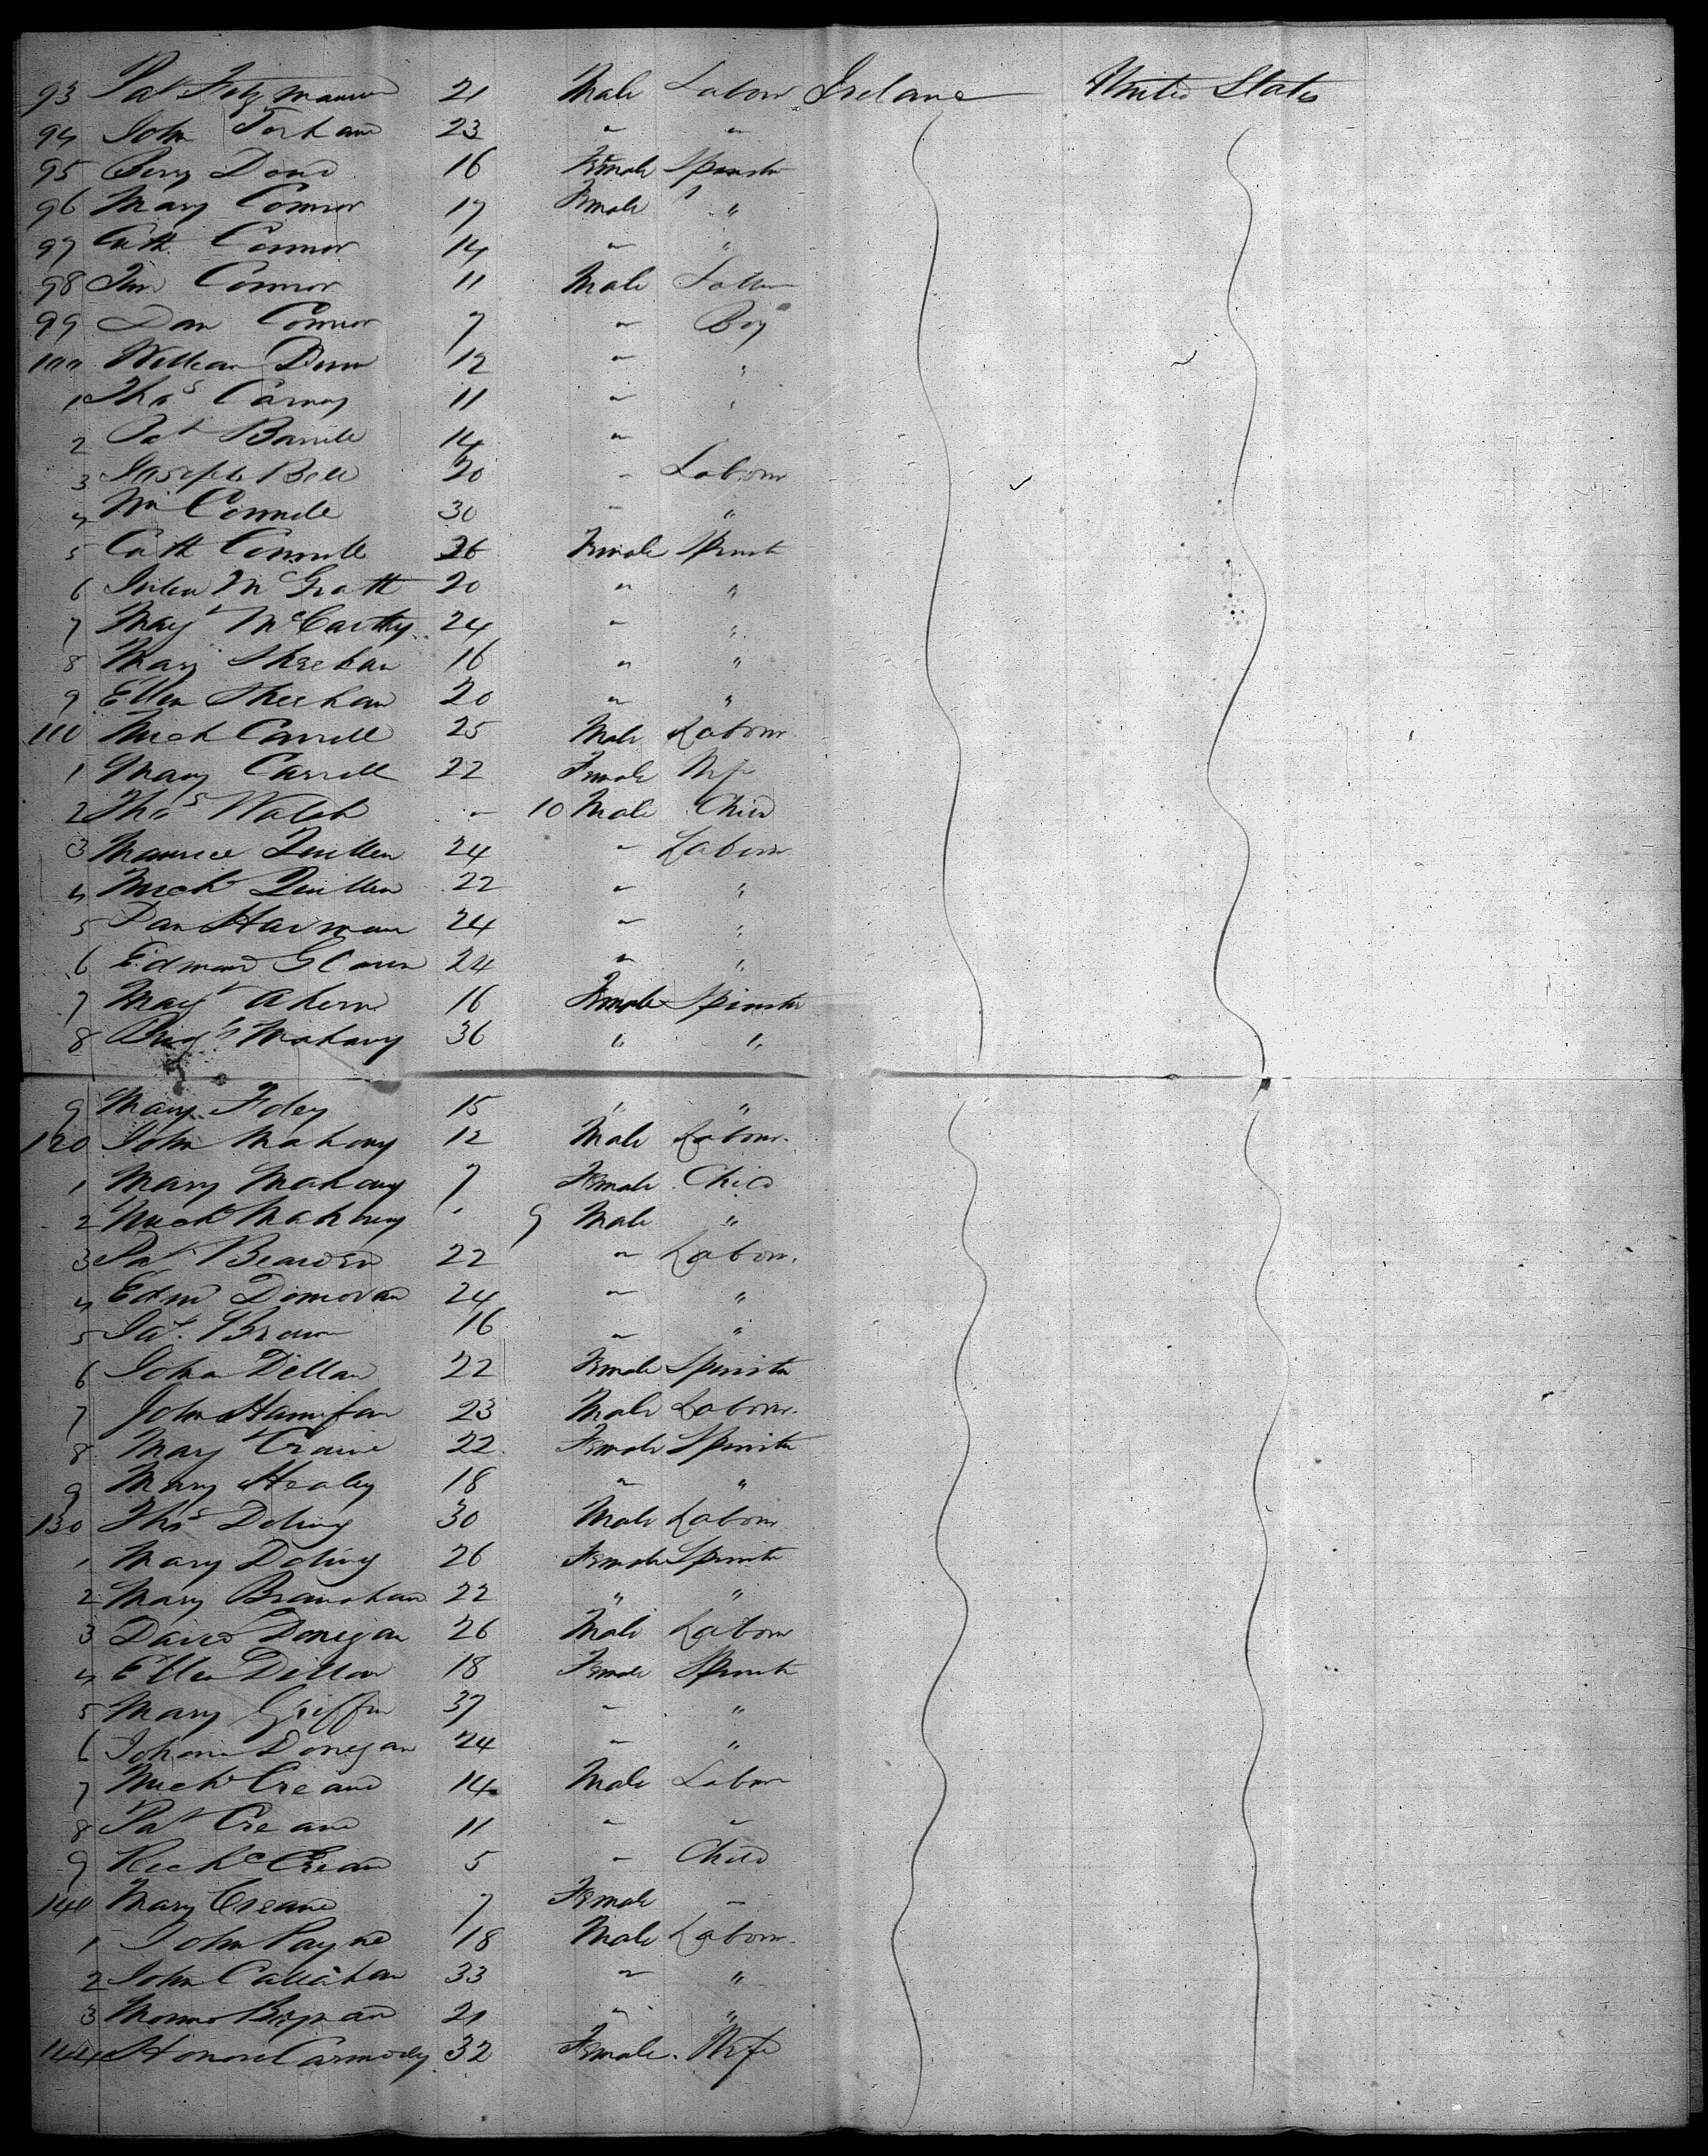 93 Pat Fitzmaurice 21 Male Labour Ireland United States
94 John 23 " "
95 Dowd 16 Female Spinster
96 Mary Connor 17 Female "
97 Cath Connor 14 " "
98 Connor 11 Male
99 Dan Connor 7 " Boy
100 William Dunn 12 " "
1 Thos Carney 11 " "
2 Pat 14 "
3 Joseph Bell 20 " Labour
4 Wm Connell 30 " "
5 Cath Connell 26 Female Spinster
6 McGrath 20 " "
7 Magt McCarthy 24 " "
8 Mary Sheehan 16 " "
9 Ellen Sheehan 20 " "
110 Mich Carrell 25 Male Labour
1 Mary Carrell 22 Female Wife
2 Thos Walsh - 10 Male Child
3 Maurice Quillen 24 " Labour
4 Michl Quillen 22 " "
5 Dan 24 " "
6 Edmund 24 " "
7 Magt Ahern 16 Female Spinster
8 Bridgt Mahony 36 " "
9 Mary Foley 15 " "
120 John Mahony 12 Male Labour
1 Mary Mahony 7 Female Child
2 Michl Mahony " 9 Male "
3 Pat 22 " Labour
4 Edmd Donovan 24 " "
5 Brown 16 " "
6 Johan Dillan 22 Female Spinster
7 John Hanifan 23 Male Labour
8 Mary 22 Female Spinster
9 Mary Healey 18 " "
130 Thos Doling 30 Male Labour
1 Mary Doling 26 Female Spinster
2 Mary 22 " "
3 David Donegan 26 Male Labour
4 Ellen Dillon 18 Female Spinster
5 Mary Griffin 37 " "
6 Johana Donegan 24 " "
7 Michl Creane 14 Male Labour
8 Pat Creane 11 " "
9 Richd Creane 5 " Child
140 Mary Creane 7 Female "
1 John Payne 18 Male Labour
2 John Callahan 33 " "
3 21 " "
144 Honora Carmody 32 Female Wife